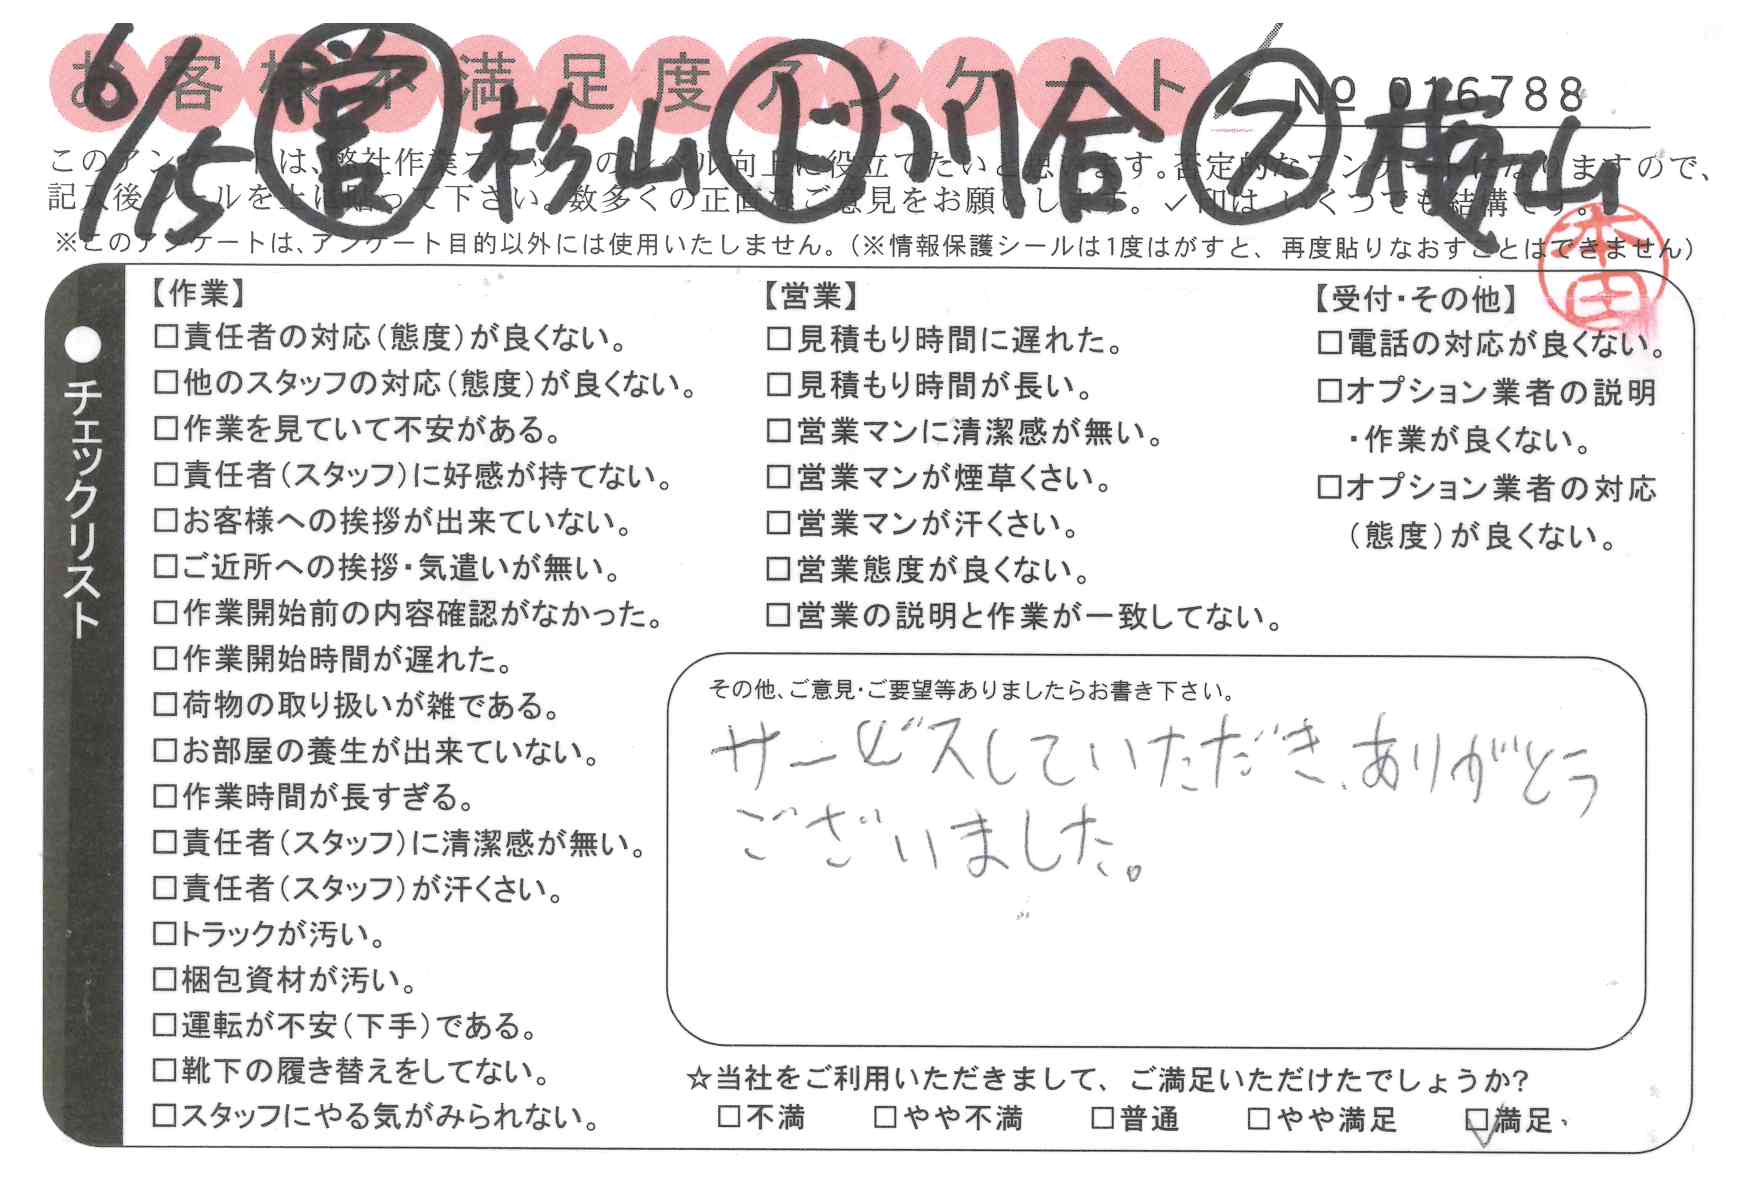 お客様不満足度アンケート
6/15 営 杉山 ド 川合 ス 横山
№ 016788
このアンケートは、弊社作業スタッフのレベル向上に役立てたいと思います。否定的なアンケートになりますので、
記入後シールを上に貼って下さい。数多くの正直なご意見をお願いします。✓印は、いくつでも結構です。
※このアンケートは、アンケート目的以外には使用いたしません。(※情報保護シールは1度はがすと、再度貼りなおすことはできません)
本田
●チェックリスト
【作業】
□責任者の対応(態度)が良くない。
□他のスタッフの対応(態度)が良くない。
□作業を見ていて不安がある。
□責任者(スタッフ)に好感が持てない。
□お客様への挨拶が出来ていない。
□ご近所への挨拶・気遣いが無い。
□作業開始前の内容確認がなかった。
□作業開始時間が遅れた。
□荷物の取り扱いが雑である。
□お部屋の養生が出来ていない。
□作業時間が長すぎる。
□責任者(スタッフ)に清潔感が無い。
□責任者(スタッフ)が汗くさい。
□トラックが汚い。
□梱包資材が汚い。
□運転が不安(下手)である。
□靴下の履き替えをしてない。
□スタッフにやる気がみられない。
【営業】
□見積もり時間に遅れた。
□見積もり時間が長い。
□営業マンに清潔感が無い。
□営業マンが煙草くさい。
□営業マンが汗くさい。
□営業態度が良くない。
□営業の説明と作業が一致してない。
【受付・その他】
□電話の対応が良くない。
□オプション業者の説明
・作業が良くない。
□オプション業者の対応
(態度)が良くない。
その他、ご意見・ご要望等ありましたらお書き下さい。
サービスしていただき、ありがとう
ございました。
☆当社をご利用いただきまして、ご満足いただけたでしょうか?
□不満 □やや不満 □普通 □やや満足 ☑満足